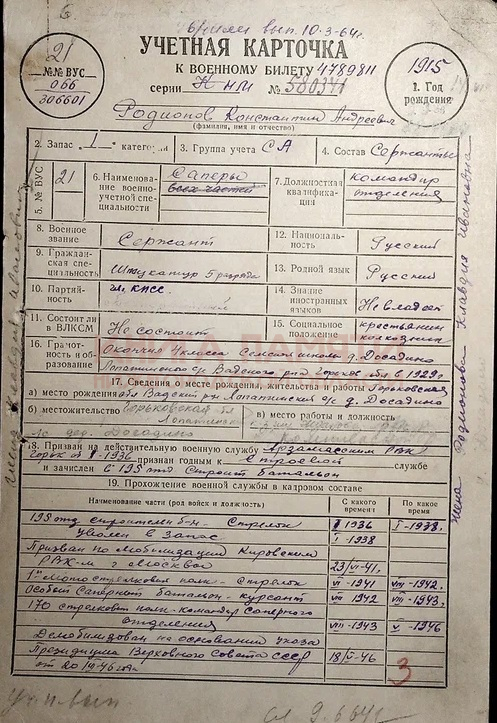 выдан вып. 10-3-64г.
УЧЕТНАЯ КАРТОЧКА
К ВОЕННОМУ БИЛЕТУ 4789811
серии НМ № 580341
21
№№ ВУС
066
306601
1915
1. Год
рождения
Родионов Константин Андреевич
(фамилия, имя и отчество)
2. Запас 1 категории
3. Группа учета СА
4. Состав Сержанты
5. № ВУС 21
6. Наименование военно-учетной специальности
Саперы
всех частей
7. Должностная квалификация
командир
отделения
8. Военное звание
Сержант
12. Национальность
Русский
9. Гражданская специальность
Штукатур 5 разряда
13. Родной язык
Русский
10. Партийность
чл. КПСС
14. Знание иностранных языков
Не владеет
11. Состоит ли в ВЛКСМ
Не состоит
15. Социальное положение
крестьянин
колхозник
16. Грамотность и образование
Окончил 4 класса сельской школы д. Досадино
Лопатинского с/с Вадского р-на Горьков. обл в 1929 г.
17. Сведения о месте рождения, жительства и работы Горьковская
а) место рождения обл Вадский р-н Лопатинский с/с д. Досадино
б) местожительство Горьковская обл
в) место работы и должность
дер. Досадино
18. Призван на действительную военную службу Арзамасским РВК
Горьк обл 1936 признан годным к строевой службе
и зачислен в 195 отд Строит батальон
19. Прохождение военной службы в кадровом составе
Наименование части (род войск и должность)
С какого времени
По какое время
195 отд. строители б-н - Стрелок 1936 I-1938.
Уволен в запас I 1938
Призван по мобилизации Кировским
РВК-м г Москва 23/VI-41.
1й мотострелковый полк - Стрелок VI-1941 VIII-1942.
Особый Саперный батальон - курсант VIII 1942 VIII-1943.
170 стрелков полк - командир саперного
отделения VIII-1943 V-1946
Демобилизован на основании Указа
Президиума Верховного Совета СССР
от 20 1946 года 18/V-46
3
Жена Родионова Клавдия Ивановна
КНИГА ПАМЯТИ